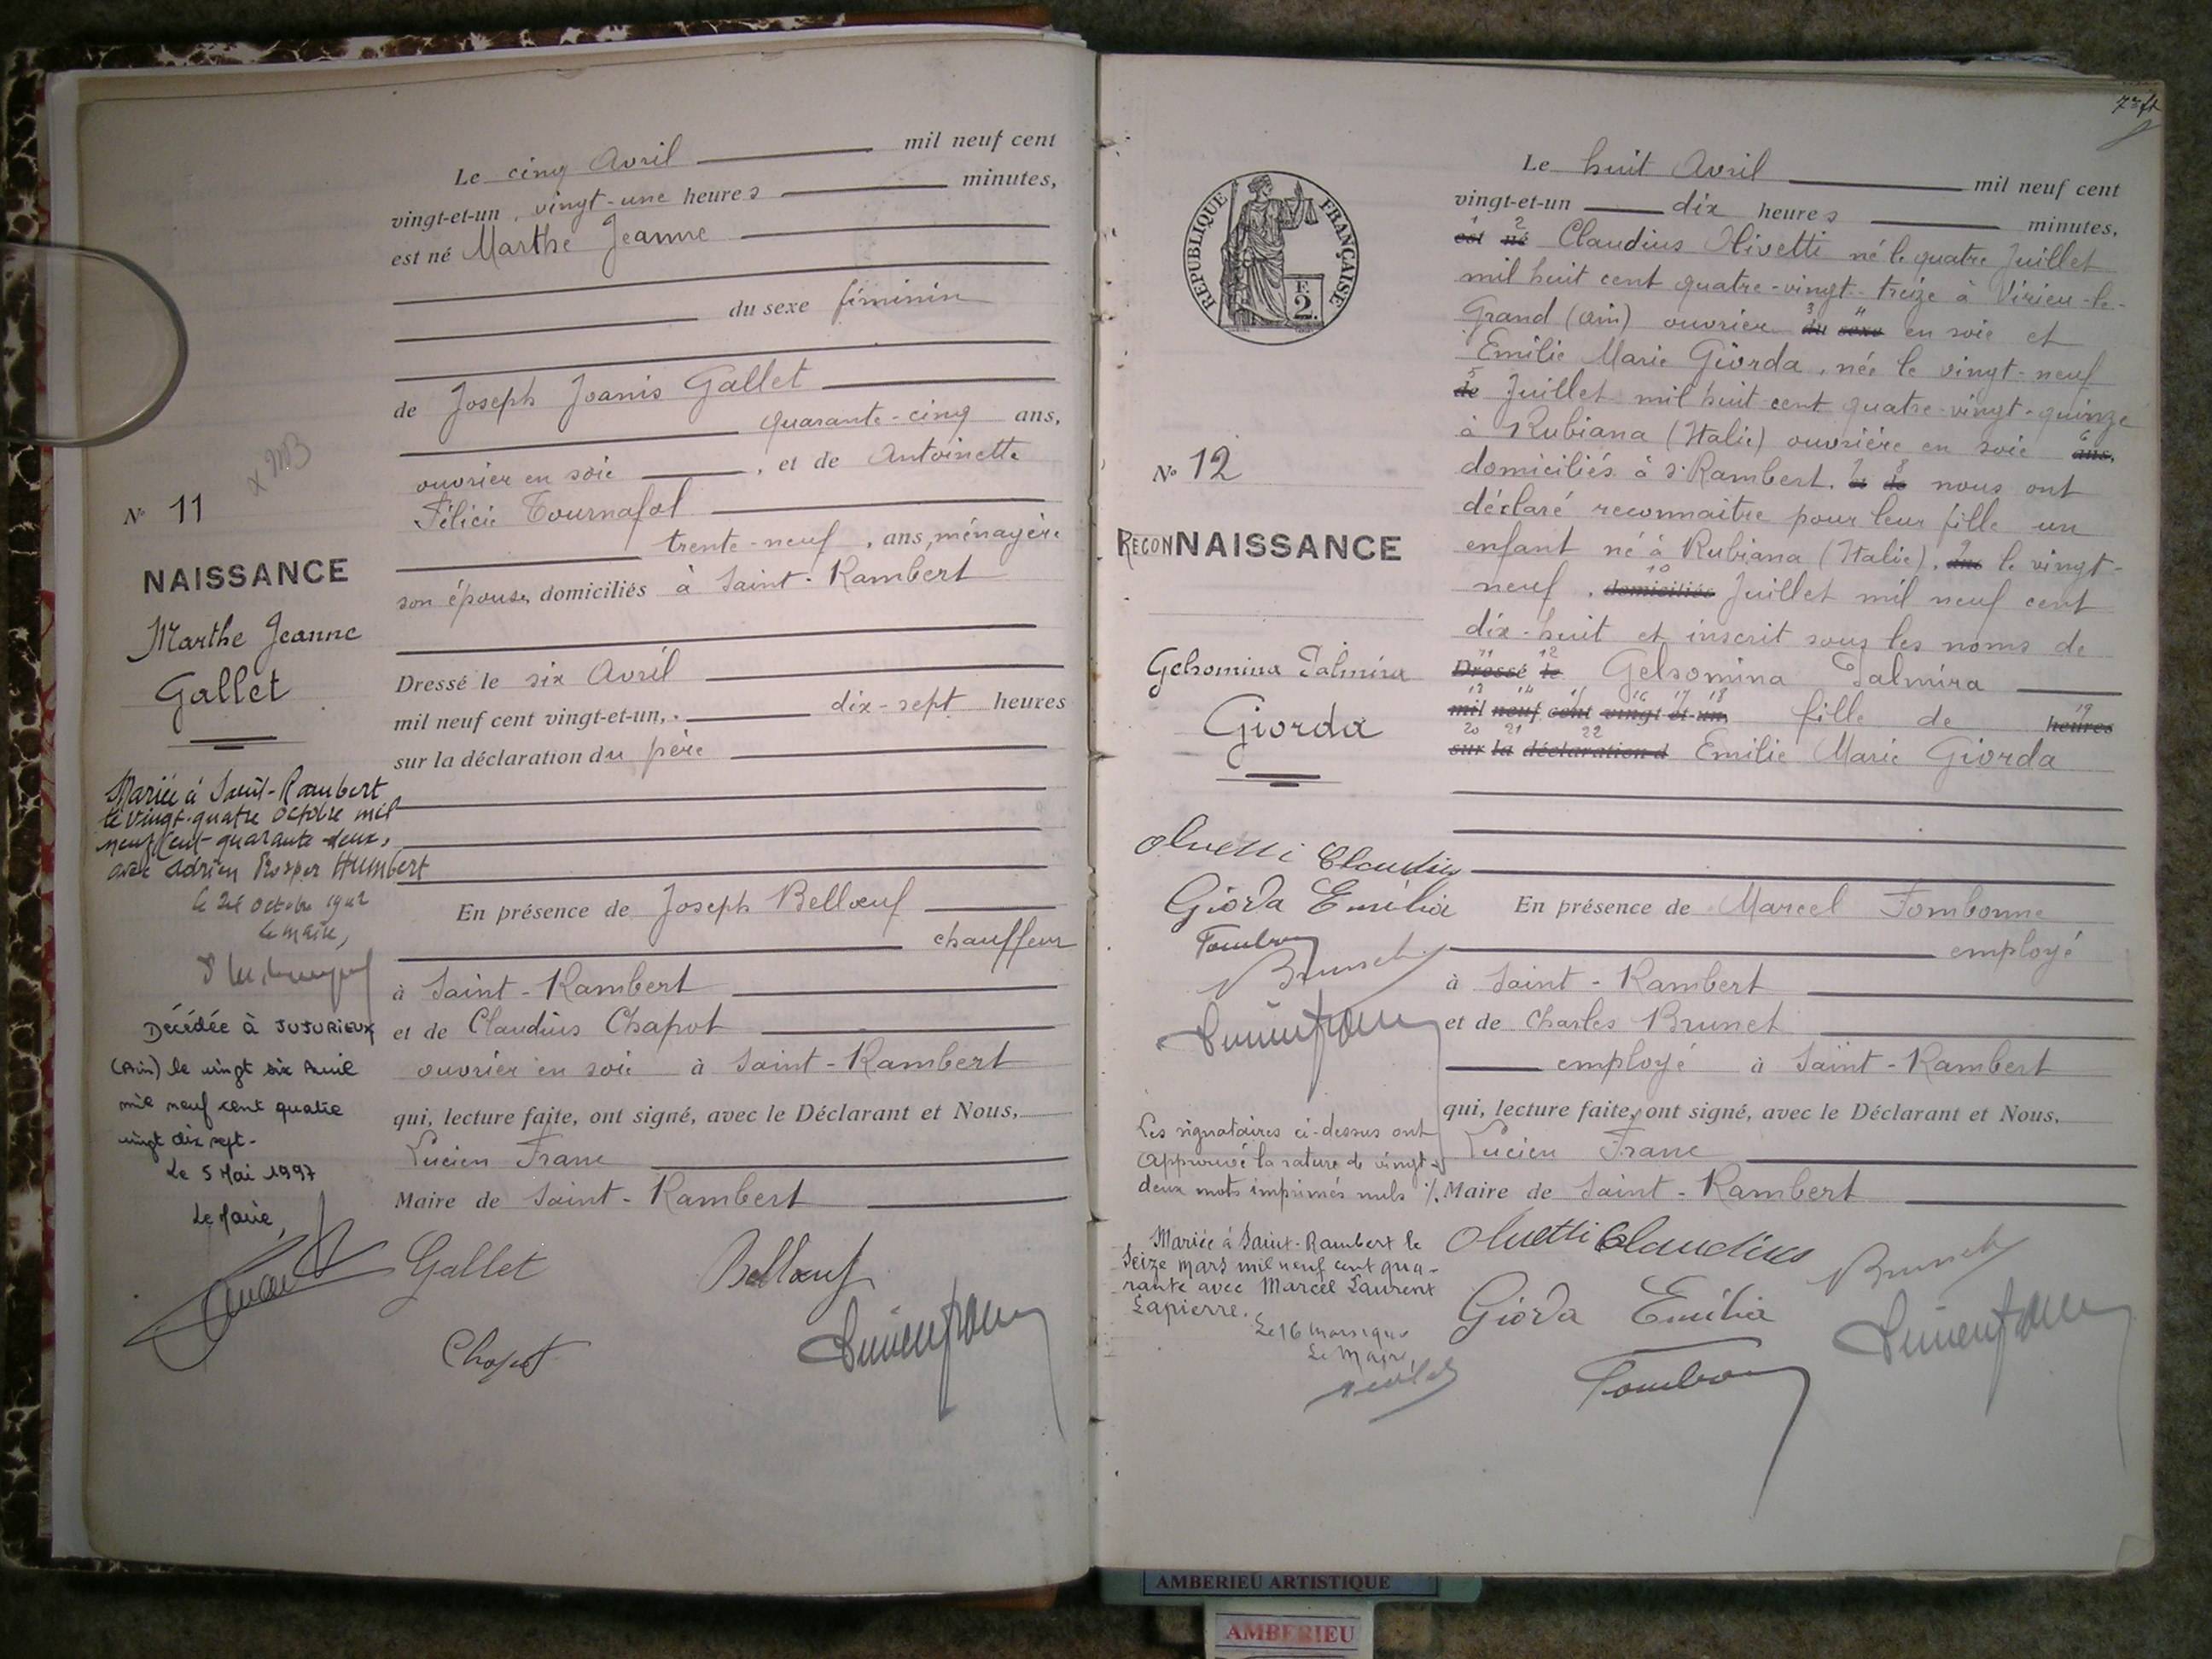 Le cinq Avril mil neuf cent
vingt-et-un, vingt-une heures minutes,
est né Marthe Jeanne
du sexe féminin
de Joseph Joanis Gallet
quarante-cinq ans,
ouvrier en soie, et de Antoinette
Félicie Tournafol
trente-neuf, ans, ménagère
son épouse, domiciliés à Saint-Rambert
Dressé le six Avril
mil neuf cent vingt-et-un, dix-sept heures
sur la déclaration du père
En présence de Joseph Bellœuf
chauffeur
à Saint-Rambert
et de Claudius Chapot
ouvrier en soie à Saint-Rambert
qui, lecture faite, ont signé, avec le Déclarant et Nous,
Lucien Franc
Maire de Saint-Rambert
Gallet Bellœuf
Chapot
N° 11
NAISSANCE
Marthe Jeanne
Gallet
Mariée à Saint-Rambert
le vingt-quatre octobre mil
neuf cent quarante-deux,
avec Adrien Prosper HUMBERT
le 24 octobre 1942
Le Maire,
Décédée à JUJURIEUX
(Ain) le vingt six Avril
mil neuf cent quatre
vingt dix sept-
Le 5 Mai 1997
Le Maire,
RÉPUBLIQUE FRANÇAISE
F.
2.
N° 12
RECONNAISSANCE
Gelsomina Palmira
Giorda
Olivetti Claudius
Giorda Emilia
Les signataires ci-dessus ont
approuvé la rature de vingt-
deux mots imprimés nuls ./.
Mariée à Saint-Rambert le
Seize mars mil neuf cent qua-
rante avec Marcel Laurent
Lapierre.
Le 16 mars 1940
Le Maire,
Le huit Avril mil neuf cent
vingt-et-un dix heures minutes,
1 2
est né Claudius Olivetti né le quatre Juillet
mil huit cent quatre-vingt-treize à Virieu-le-
3 4
Grand (Ain) ouvrier du sexe en soie et
Emilie Marie Giorda, née le vingt-neuf
5
de Juillet mil huit cent quatre-vingt-quinze
6
à Rubiana (Italie) ouvrière en soie ans,
7 8
domiciliés à S. Rambert. nous ont
déclaré reconnaitre pour leur fille un
9
enfant né à Rubiana (Italie), ans le vingt-
10
neuf, domiciliés Juillet mil neuf cent
dix-huit et inscrit sous les noms de
11 12
Dressé le Gelsomina Palmira
13 14 15 16 17 18 19
mil neuf cent vingt-et-un, fille de heures
20 21 22
sur la déclaration d Emilie Marie Giorda
En présence de Marcel Fombonne
employé
à Saint-Rambert
et de Charles Brunet
employé à Saint-Rambert
qui, lecture faite, ont signé, avec le Déclarant et Nous,
Lucien Franc
Maire de Saint-Rambert
Olivetti Claudius
Giorda Emilia
AMBERIEU ARTISTIQUE
AMBERIEU